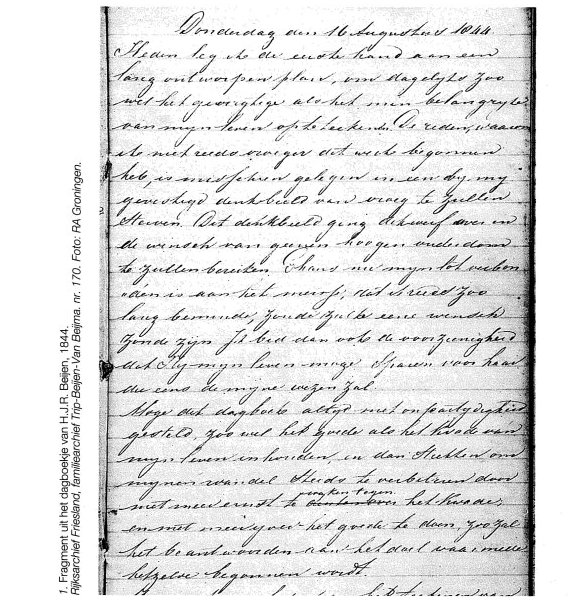 1. Fragment uit het dagboekje van H.J.R. Beijen, 1844.
Rijksarchief Friesland, familiearchief Trip-Beijen-Van Beijma. nr. 170. Foto: RA Groningen.
Donderdag den 16 Augustus 1844.
Heden leg ik de eerste hand aan een
lang ontworpen plan, om dagelyks zoo
wel het gewigtige als het min belangryke
van myn leven op te teekenen. De reden, waarom
ik niet reeds vroeger dit werk begonnen
heb, is misschien gelegen in een by my
gevestigd denkbeeld van vroeg te zullen
sterven. Dit denkbeeld ging over in
de wensch van geenen hoogen ouderdom
te zullen bereiken. Thans nu myn lot verbon-
den is aan het meisje, dat ik reeds zoo
lang beminde, zoude zulk eene wensch
zonde zyn. Ik bid dan ook de voorzienigheid
dat Zy myn leven moge sparen voor haar
die eens de myne wezen zal.
Moge dit dagboek altyd met onpartydigheid
gesteld, zoo wel het goede als het kwade van
myn leven inhouden, en dan strekken om
mynen wandel steeds te verbeteren door
met meer ernst te waken tegen het kwade,
en met meer yver het goede te doen, zoo zal
het beantwoorden aan het doel waarmede
hetzelve begonnen wordt.